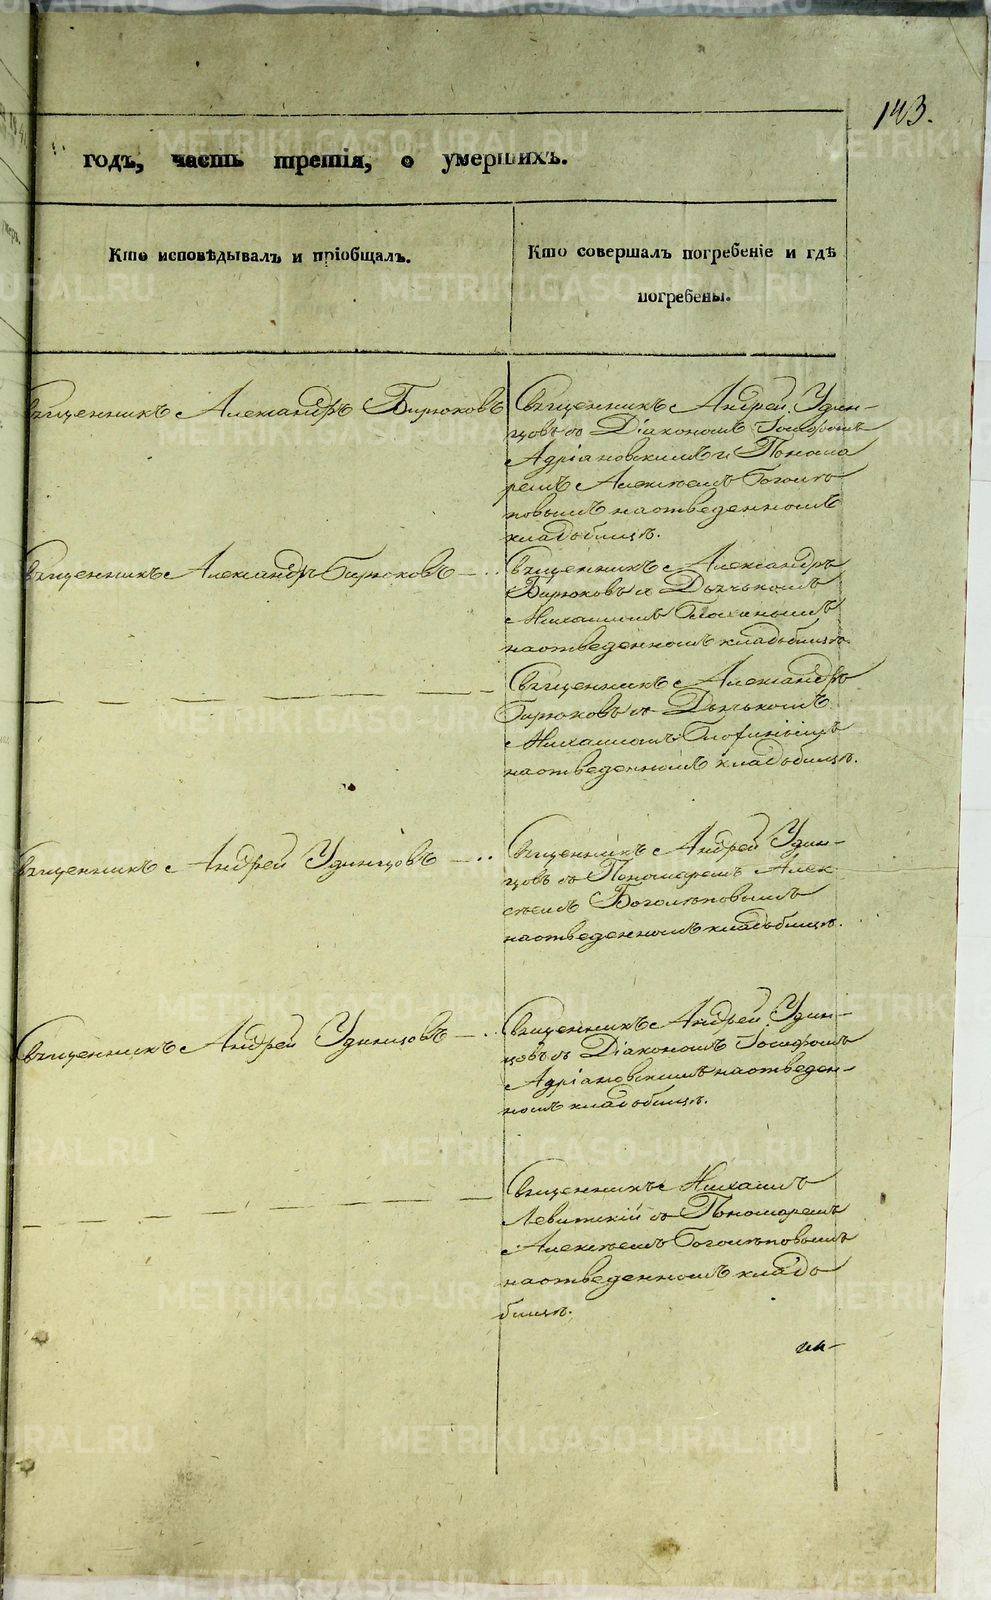 143.
годъ, часть третія, о умершихъ.
Кто исповѣдывалъ и пріобщалъ.
Кто совершалъ погребеніе и гдѣ
погребены.
Священникъ Александръ Бирюковъ
Священникъ Андрей Удин-
цовъ съ Діакономъ Іосифомъ
Адріановскимъ и Понома
ремъ Алексѣемъ Боголѣ
повымъ на отведенномъ
кладбищѣ.
Священникъ Александръ Бирюковъ — ..
Священникъ Александръ
Бирюковъ съ Дьячькомъ
Михаиломъ
на отведенномъ кладбищѣ.
Священникъ Александръ
Бирюковъ съ Дьячькомъ
Михаиломъ
на отведенномъ кладбищѣ.
Священникъ Андрей Удинцовъ — ..
Священникъ Андрей Удин-
цовъ съ Пономаремъ Алек
сѣемъ Боголѣповымъ
на отведенномъ кладбищѣ.
Священникъ Андрей Удинцовъ — ..
Священникъ Андрей Удин-
цовъ съ Діакономъ Іосифомъ
Адріановскимъ на отведен-
номъ кладбищѣ.
Священникъ Михаилъ
Левитскій съ Пономаремъ
Алексѣемъ Боголѣповымъ
на отведенномъ кладь
бищѣ.
METRIKI.GASO-URAL.RU